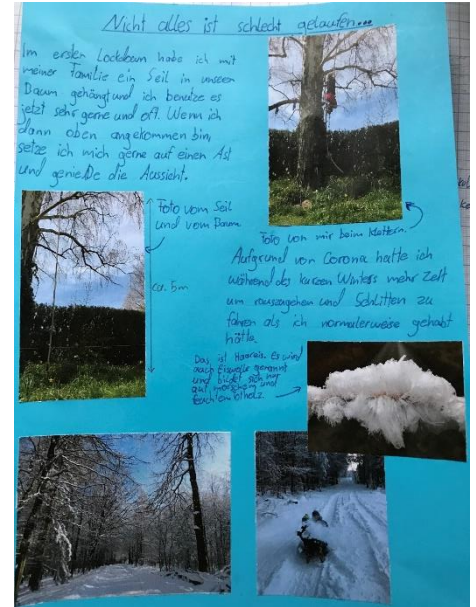 Nicht alles ist schlecht gelaufen...
Im ersten Lockdown habe ich mit
meiner Familie ein Seil in unseren
Baum gehängt und ich benutze es
jetzt sehr gerne und oft. Wenn ich
dann oben angekommen bin,
setze ich mich gerne auf einen Ast
und genieße die Aussicht.
Foto vom Seil
und vom Baum.
ca. 5m
Foto von mir beim klettern.
Aufgrund von Corona hatte ich
während des kurzen Winters mehr Zeit
um rauszugehen und Schlitten zu
fahren als ich normalerweise gehabt
hätte.
Das ist Haareis. Es wird
auch Eiswolle genannt
und bildet sich nur
auf morschem und
feuchtem Totholz.